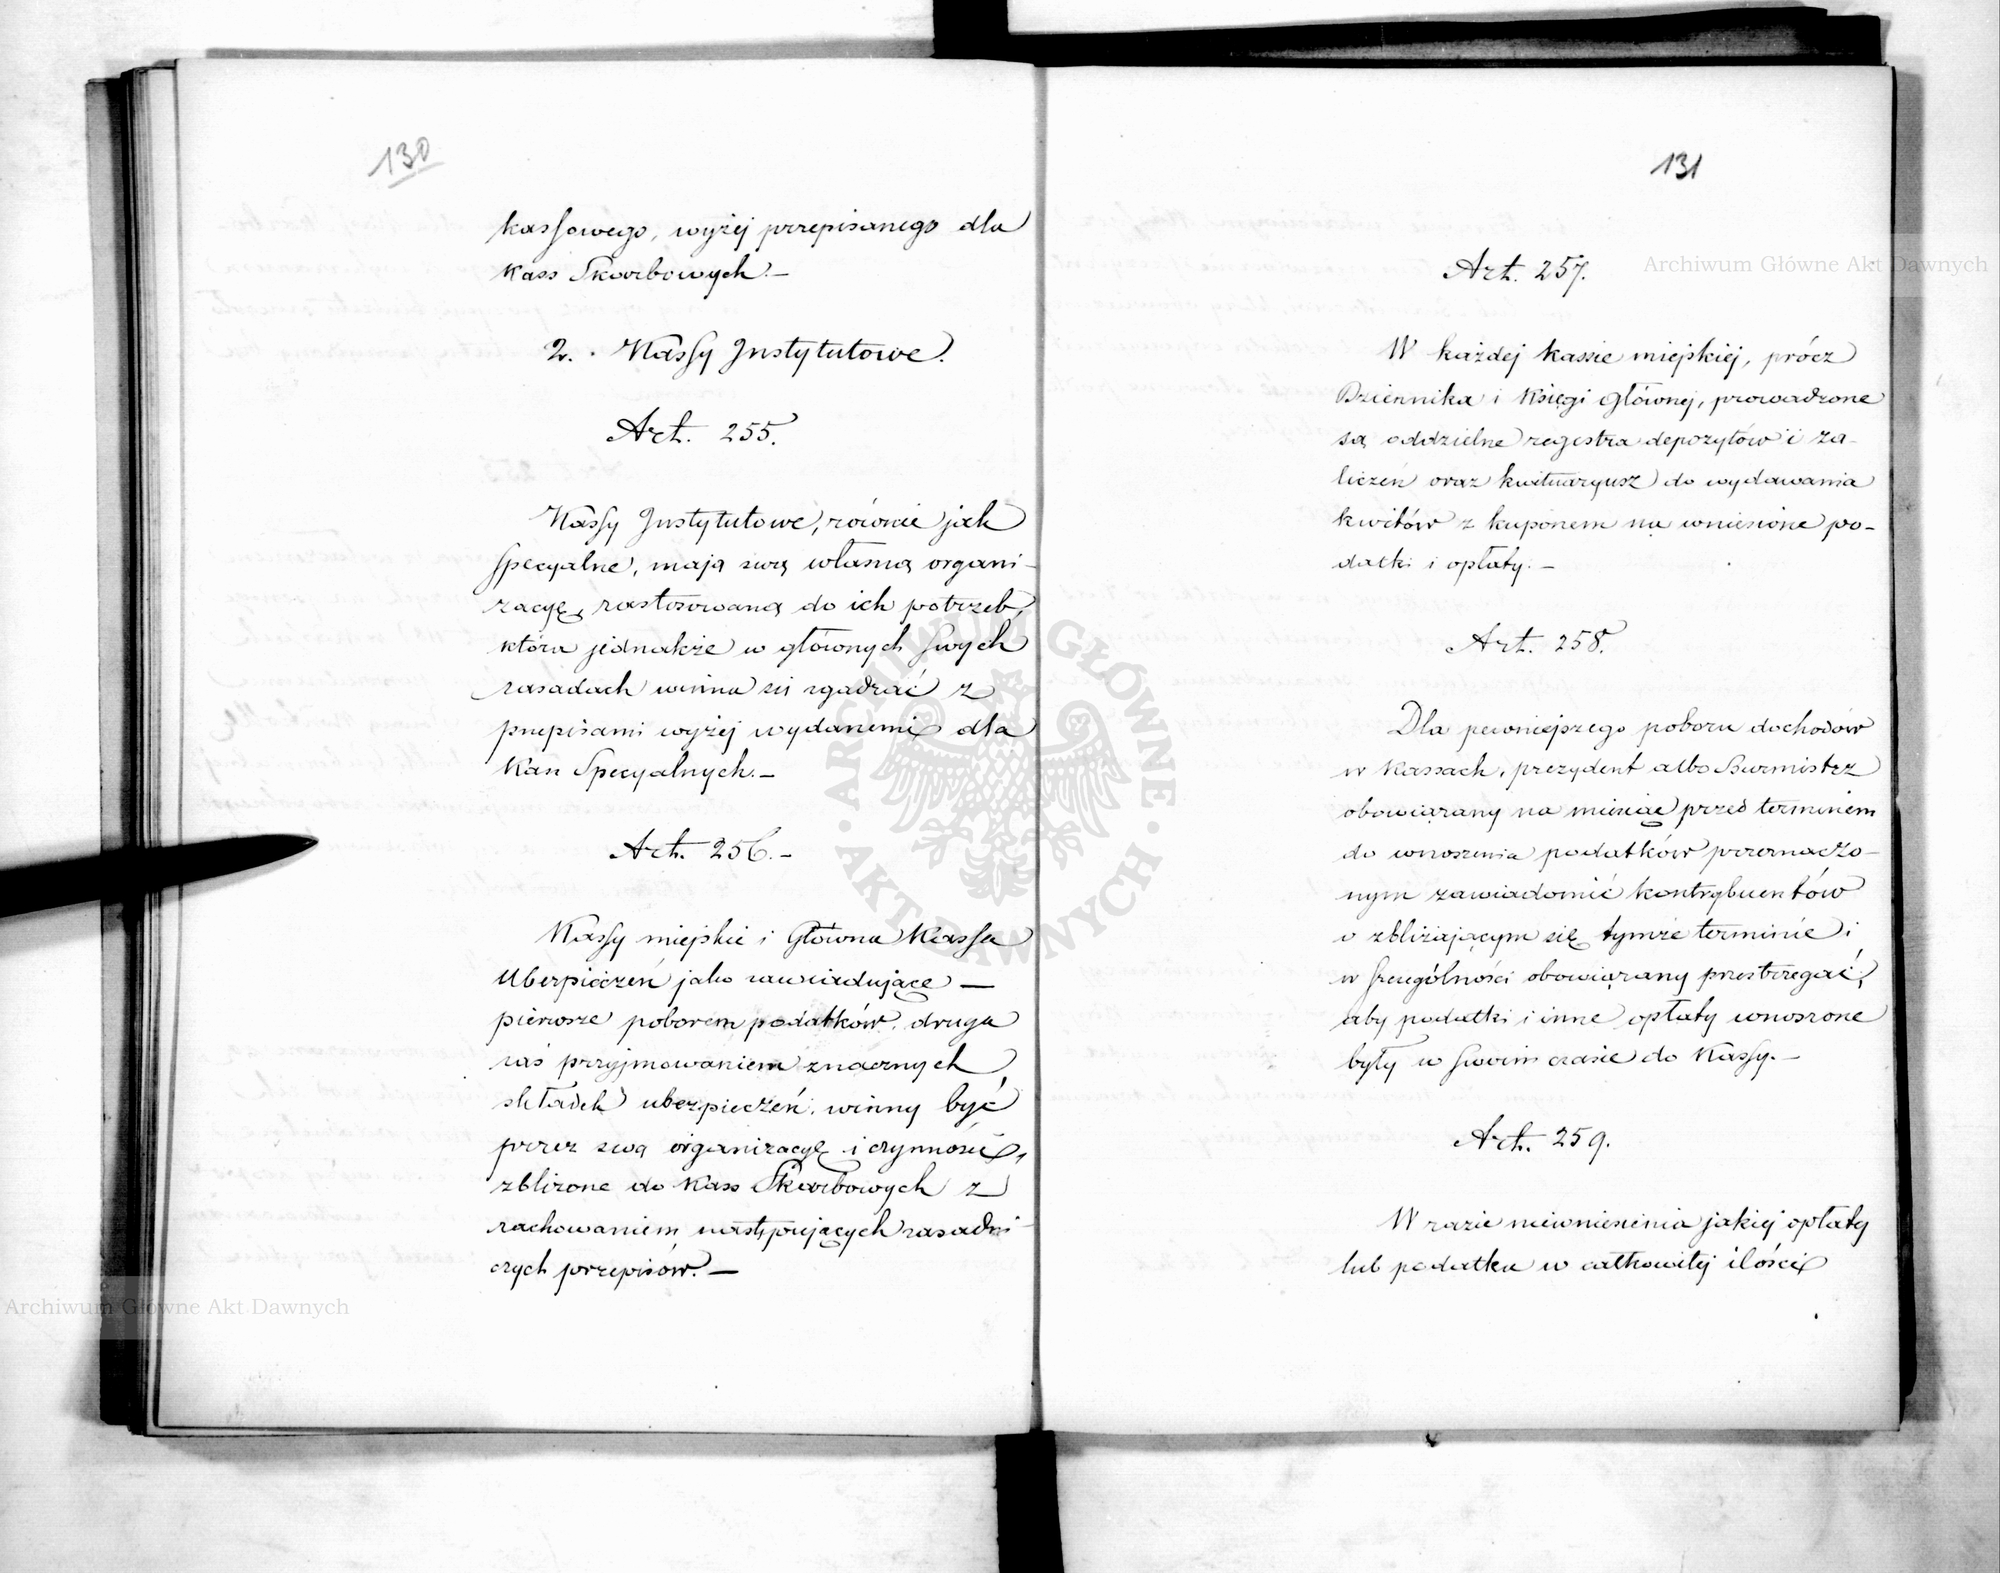 130
kassowego, wyżej przepisanego dla
Kass Skarbowych.—
2. Kassy Instytutowe.
Art. 255.
Kassy Instytutowe, równie jak
specyalne, mają swą własną organi-
zacyę, zastosowaną do ich potrzeb,
która jednakże w głównych swych
zasadach winna się zgadzać z
przepisami wyżej wydanemi dla
Kass Specyalnych.—
Art. 256.—
Kassy miejskie i Główna Kassa
Ubezpieczeń jako zawiadujące —
pierwsze poborem podatków, druga
zaś przyjmowaniem znacznych
składek ubezpieczeń, winny być
przez swą organizacyę i czynności,
zbliżone do Kass Skarbowych z
zachowaniem następujących zasadni-
czych przepisów.—
131
Art. 257.
W każdej kassie miejskiej, prócz
Dziennika i Księgi Głównej, prowadzone
są oddzielne regestra depozytów i za-
liczeń oraz kwitaryusz do wydawania
kwitów z kuponem na wniesione po-
datki i opłaty.—
Art. 258.
Dla pewniejszego poboru dochodów
w Kassach, prezydent albo Burmistrz
obowiązany na miesiąc przed terminem
do wnoszenia podatków przeznaczo-
nym zawiadomić kontrybuentów
o zbliżającym się tymże terminie i
w szczególności obowiązany przestrzegać,
aby podatki i inne opłaty wnoszone
były w swoim czasie do Kassy.—
Art. 259.
W razie niewniesienia jakiej opłaty
lub podatku w całkowitej ilości
Archiwum Główne Akt Dawnych
Archiwum Główne Akt Dawnych
ARCHIWUM GŁÓWNE
AKT DAWNYCH